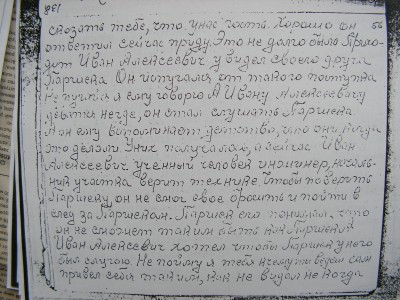 381
56
сказать тебе, что у нас гость. Хорошо он
ответил сейчас приду. Это не долго было Прихо-
дит Иван Алексеевич увидел своего друга
Паршека. Он испугался от такого поступка
ему говорю А Ивану Алексеевичу
деватся негде, он стал слушать Паршека
А он ему вспоминает, детство, что они
это делали. У них получалось, а сейчас Иван
Алексеевич ученный человек инжинер, началь-
ник участка верит технике чтобы поверить
Паршеку, он не смог свое бросить и пойти в
след за Паршеком. Паршек его понимал, что
он не сможет таким быть как Паршек
Иван Алексеевич хотел чтобы Паршек у него
был Не пойму я тебя к чему ты ведеш сам
привел себя таким, как не видал не когда